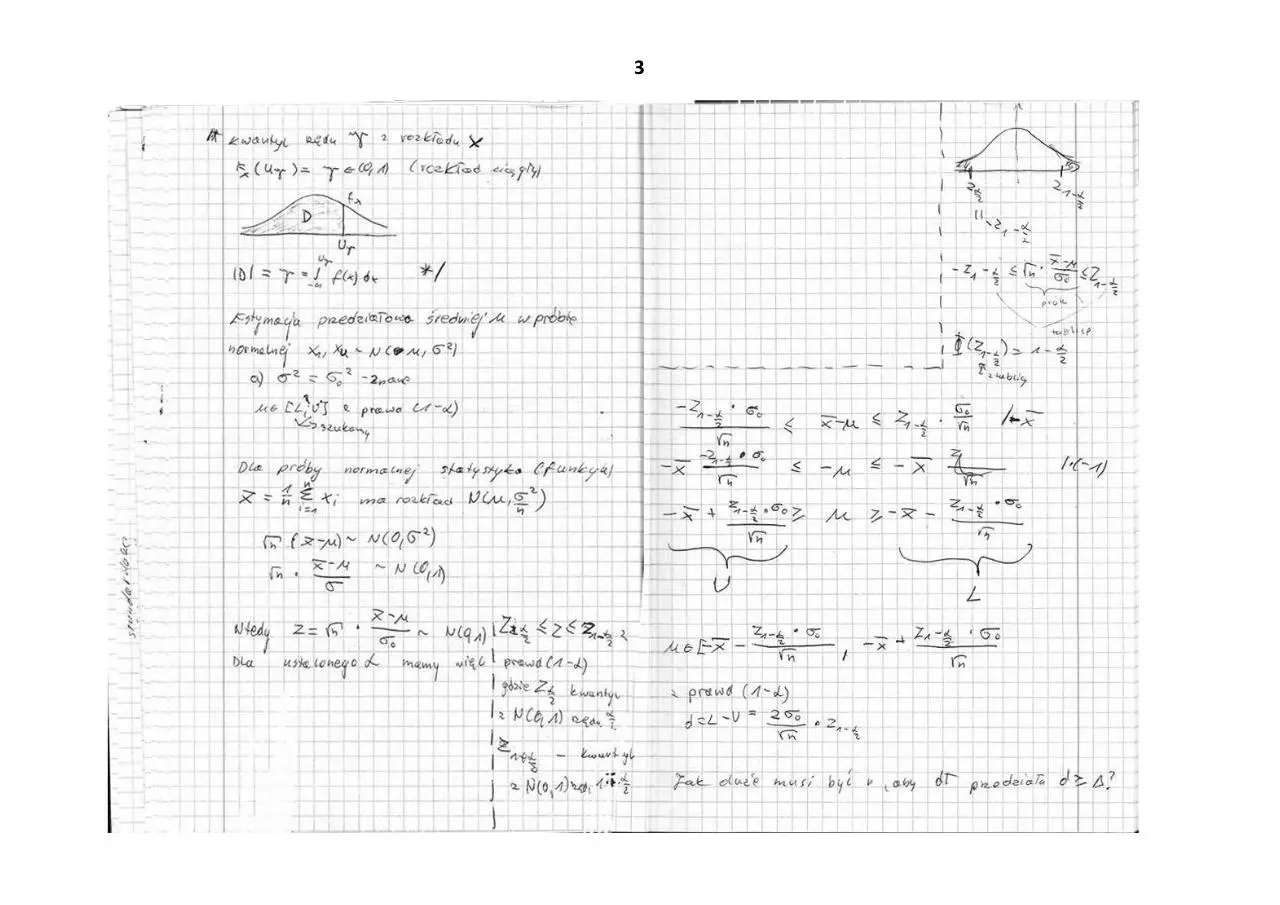 3
kwantyl rzędu γ z rozkładu X
F_x(u_γ) = γ ∈ (0,1) (rozkład ciągły)
f_x
D
u_γ
|D| = γ = ∫_{-∞}^{u_γ} f(x) dx */
Estymacja przedziałowa średniej μ w próbie
normalnej x_1, x_n ~ N(μ, σ²)
a) σ² = σ_0² - znane
μ ∈ [L, U] z prawd (1-α)
szukany
Dla próby normalnej statystyka (funkcja)
x̄ = 1/n Σ_{i=1}^{n} x_i ma rozkład N(μ, σ²/n)
√n (x̄-μ) ~ N(0, σ²)
√n · (x̄-μ)/σ ~ N(0,1)
standaryzacja
Wtedy Z = √n · (x̄-μ)/σ_0 ~ N(0,1)
Dla ustalonego α mamy więc
Z_{α/2} ≤ Z ≤ Z_{1-α/2} z
prawd (1-α)
gdzie Z_{α/2} kwantyl
z N(0,1) rzędu α/2
Z_{1-α/2} - kwantyl
z N(0,1) rzędu 1-α/2
Z_{α/2} Z_{1-α/2}
|| -Z_{1-α/2}
-Z_{1-α/2} ≤ √n · (x̄-μ)/σ_0 ≤ Z_{1-α/2}
tablice
Φ(Z_{1-α/2}) = 1-α/2
z tablicy
-Z_{1-α/2} · σ_0/√n ≤ x̄-μ ≤ Z_{1-α/2} · σ_0/√n /-x̄
-x̄ -Z_{1-α/2} · σ_0/√n ≤ -μ ≤ -x̄ Z/√n /·(-1)
-x̄ + Z_{1-α/2} · σ_0/√n ≥ μ ≥ -x̄ - Z_{1-α/2} · σ_0/√n
U L
μ ∈ [-x̄ - Z_{1-α/2} · σ_0/√n , -x̄ + Z_{1-α/2} · σ_0/√n
z prawd (1-α)
d = L-U = 2σ_0/√n · Z_{1-α/2}
Jak duże musi być n, aby dł przedziału d ≥ Δ?